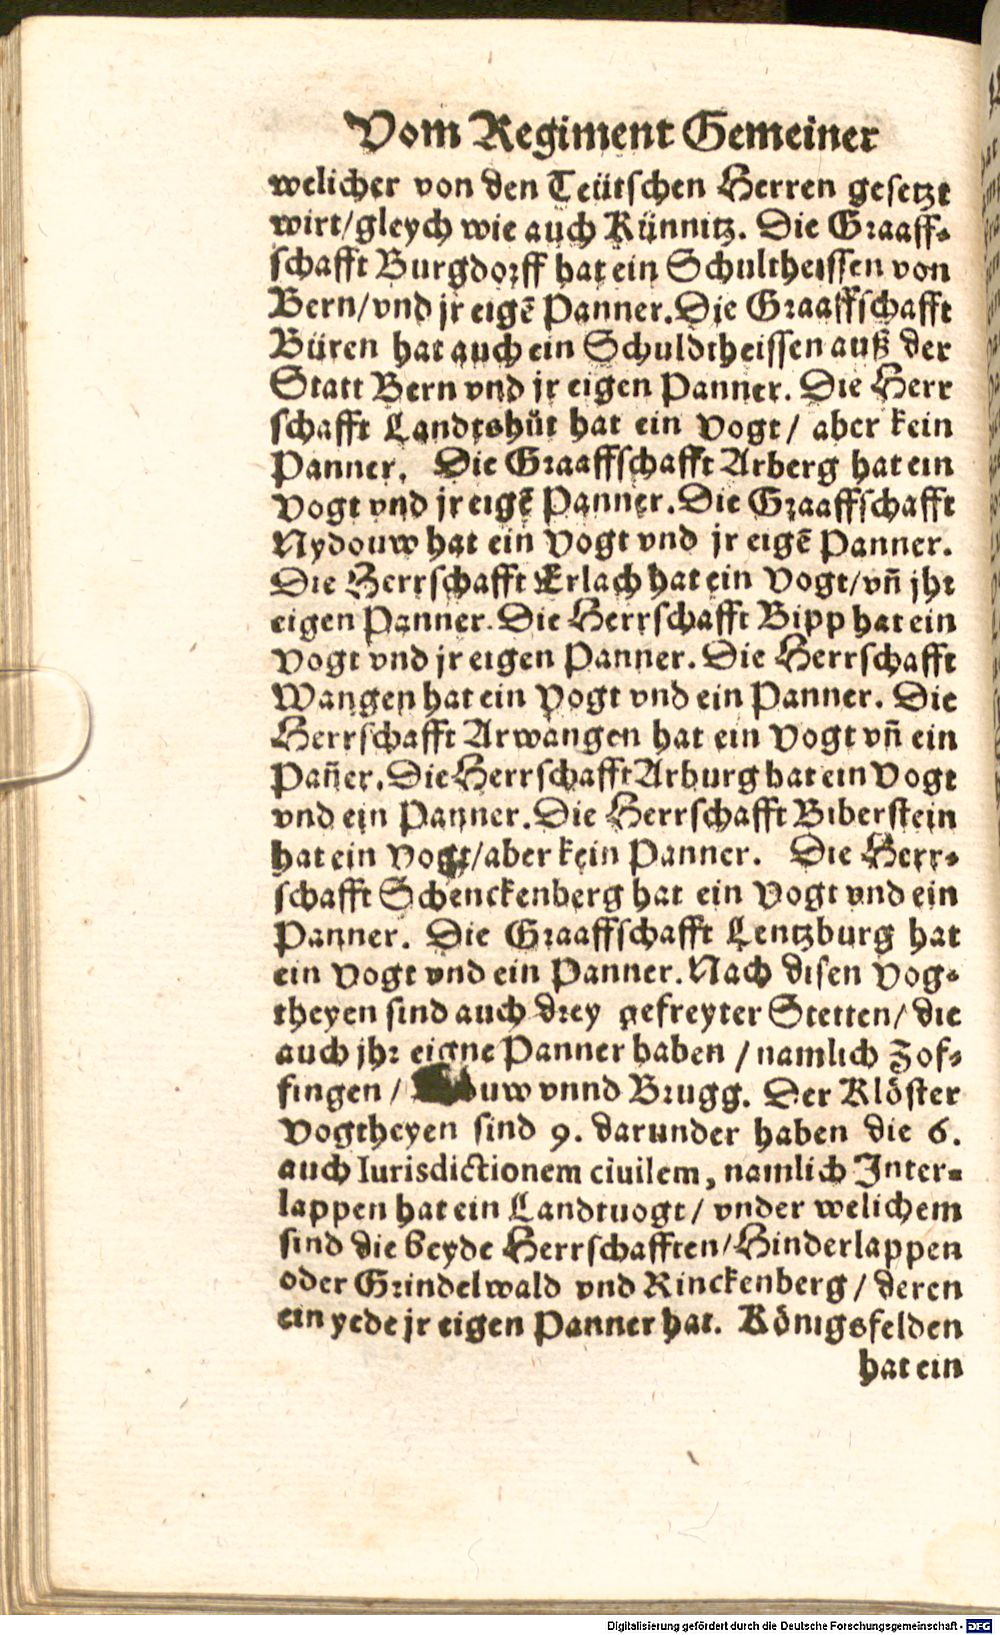 Vom Regiment Gemeiner
welicher von den Teütschen Herren gesetzt
wirt/gleych wie auch Künnitz. Die Graaff-
schafft Burgdorff hat ein Schultheissen von
Bern/vnd jr eigē Panner. Die Graaffschafft
Büren hat auch ein Schuldtheissen auß der
Statt Bern vnd jr eigen Panner. Die Herr
schafft Landtshůt hat ein Vogt/ aber kein
Panner. Die Graaffschafft Arberg hat ein
Vogt vnd jr eigē Panner. Die Graaffschafft
Nydouw hat ein Vogt vnd jr eigē Panner.
Die Herrschafft Erlach hat ein Vogt/vn̄ jhr
eigen Panner. Die Herrschafft Bipp hat ein
Vogt vnd jr eigen Panner. Die Herrschafft
Wangen hat ein Vogt vnd ein Panner. Die
Herrschafft Arwangen hat ein Vogt vn̄ ein
Pan̄er. Die Herrschafft Arburg hat ein Vogt
vnd ein Panner. Die Herrschafft Biberstein
hat ein Vogt/aber kein Panner. Die Herr-
schafft Schenckenberg hat ein Vogt vnd ein
Panner. Die Graaffschafft Lentzburg hat
ein Vogt vnd ein Panner. Nach disen Vog-
theyen sind auch drey gefreyter Stetten/ die
auch jhr eigne Panner haben / namlich Zof-
fingen / ouw vnnd Brugg. Der Klöster
Vogtheyen sind 9. darunder haben die 6.
auch Iurisdictionem ciuilem, namlich Inter-
lappen hat ein Landtuogt/ vnder welichem
sind die beyde Herrschafften/Hinderlappen
oder Grindelwald vnd Rinckenberg/ deren
ein yede jr eigen Panner hat. Königsfelden
hat ein
Digitalisierung gefördert durch die Deutsche Forschungsgemeinschaft - DFG